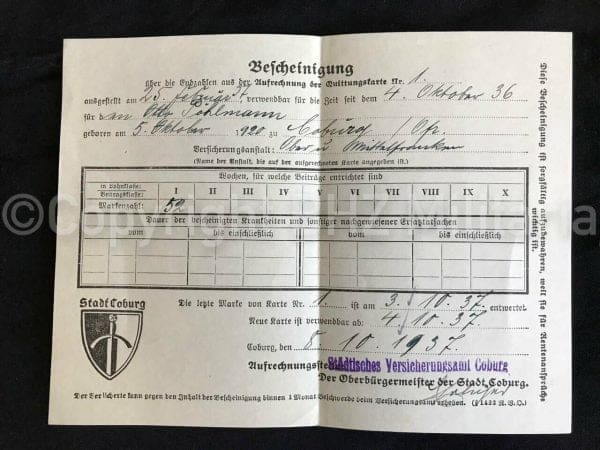 Bescheinigung
über die Endzahlen aus der Aufrechnung der Quittungskarte Nr. 1.
ausgestellt am 25. verwendbar für die Zeit seit dem 4. Oktober 36
für Otto
geboren am 5. Oktober 1920 zu Coburg / Ofr.
Versicherungsanstalt: Ober u Mittelfranken
(Name der Anstalt, die auf der aufgerechneten Karte angegeben ist.)
Wochen, für welche Beiträge entrichtet sind
in Lohnklasse:
Beitragsklasse: I II III IV V VI VII VIII IX X
Markenzahl: 52
Dauer der bescheinigten Krankheiten und sonstiger nachgewiesener Ersatztatsachen
vom bis einschließlich vom bis einschließlich
Stadt Coburg
Die letzte Marke von Karte Nr. 1. ist am 3. 10. 37. entwertet.
Neue Karte ist verwendbar ab: 4. 10. 37.
Coburg, den 8. 10. 1937.
Aufrechnungsstelle
Städtisches Versicherungsamt Coburg
Der Oberbürgermeister der Stadt Coburg.
Der Versicherte kann gegen den Inhalt der Bescheinigung binnen 1 Monat Beschwerde beim Versicherungsamt erheben. (§ 1422 R.V.O.)
Diese Bescheinigung ist sorgfältig aufzubewahren, weil sie für Rentenansprüche
wichtig ist.
©Copyright